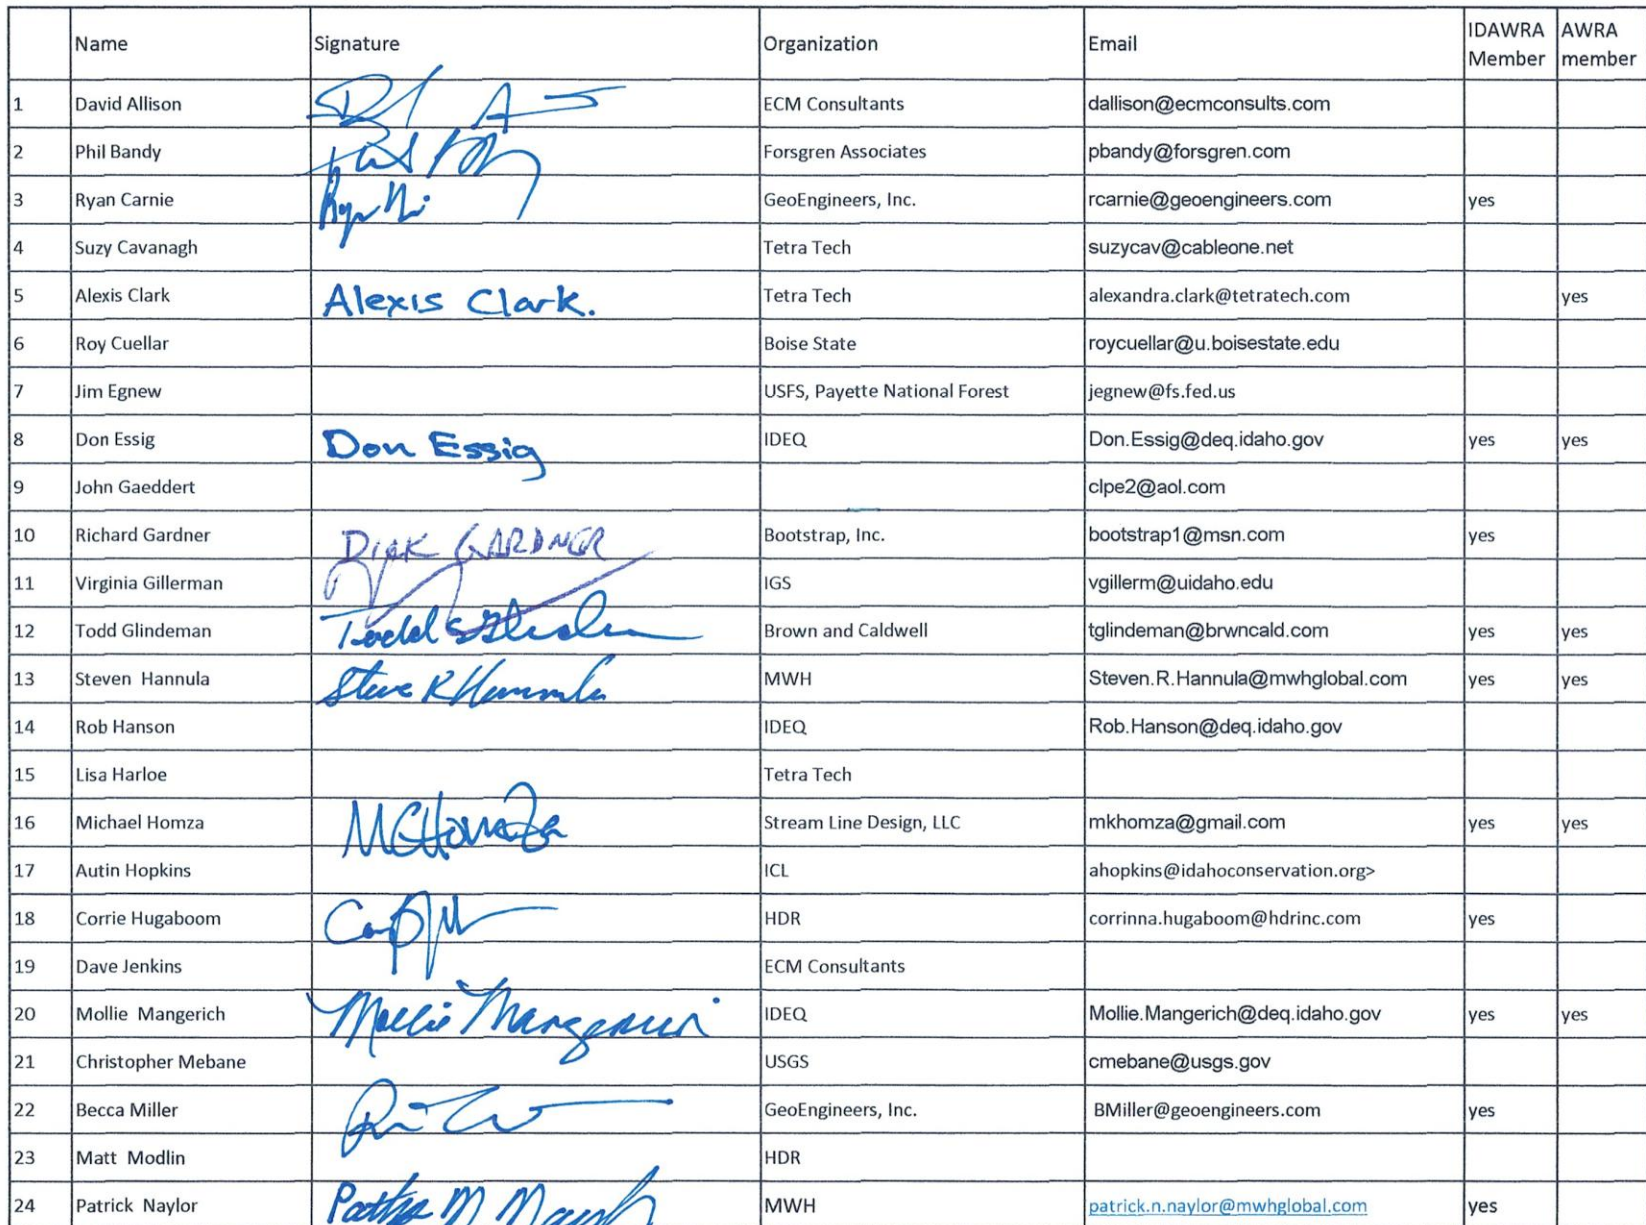 Name Signature Organization Email IDAWRA Member AWRA member
1 David Allison ECM Consultants dallison@ecmconsults.com
2 Phil Bandy Forsgren Associates pbandy@forsgren.com
3 Ryan Carnie GeoEngineers, Inc. rcarnie@geoengineers.com yes
4 Suzy Cavanagh Tetra Tech suzycav@cableone.net
5 Alexis Clark Alexis Clark. Tetra Tech alexandra.clark@tetratech.com yes
6 Roy Cuellar Boise State roycuellar@u.boisestate.edu
7 Jim Egnew USFS, Payette National Forest jegnew@fs.fed.us
8 Don Essig Don Essig IDEQ Don.Essig@deq.idaho.gov yes yes
9 John Gaeddert clpe2@aol.com
10 Richard Gardner DICK GARDNER Bootstrap, Inc. bootstrap1@msn.com yes
11 Virginia Gillerman IGS vgillerm@uidaho.edu
12 Todd Glindeman Todd Brown and Caldwell tglindeman@brwncald.com yes yes
13 Steven Hannula Steve R Hannula MWH Steven.R.Hannula@mwhglobal.com yes yes
14 Rob Hanson IDEQ Rob.Hanson@deq.idaho.gov
15 Lisa Harloe Tetra Tech
16 Michael Homza MCHomza Stream Line Design, LLC mkhomza@gmail.com yes yes
17 Autin Hopkins ICL ahopkins@idahoconservation.org>
18 Corrie Hugaboom HDR corrinna.hugaboom@hdrinc.com yes
19 Dave Jenkins ECM Consultants
20 Mollie Mangerich Mollie Mangerich IDEQ Mollie.Mangerich@deq.idaho.gov yes yes
21 Christopher Mebane USGS cmebane@usgs.gov
22 Becca Miller GeoEngineers, Inc. BMiller@geoengineers.com yes
23 Matt Modlin HDR
24 Patrick Naylor MWH patrick.n.naylor@mwhglobal.com yes